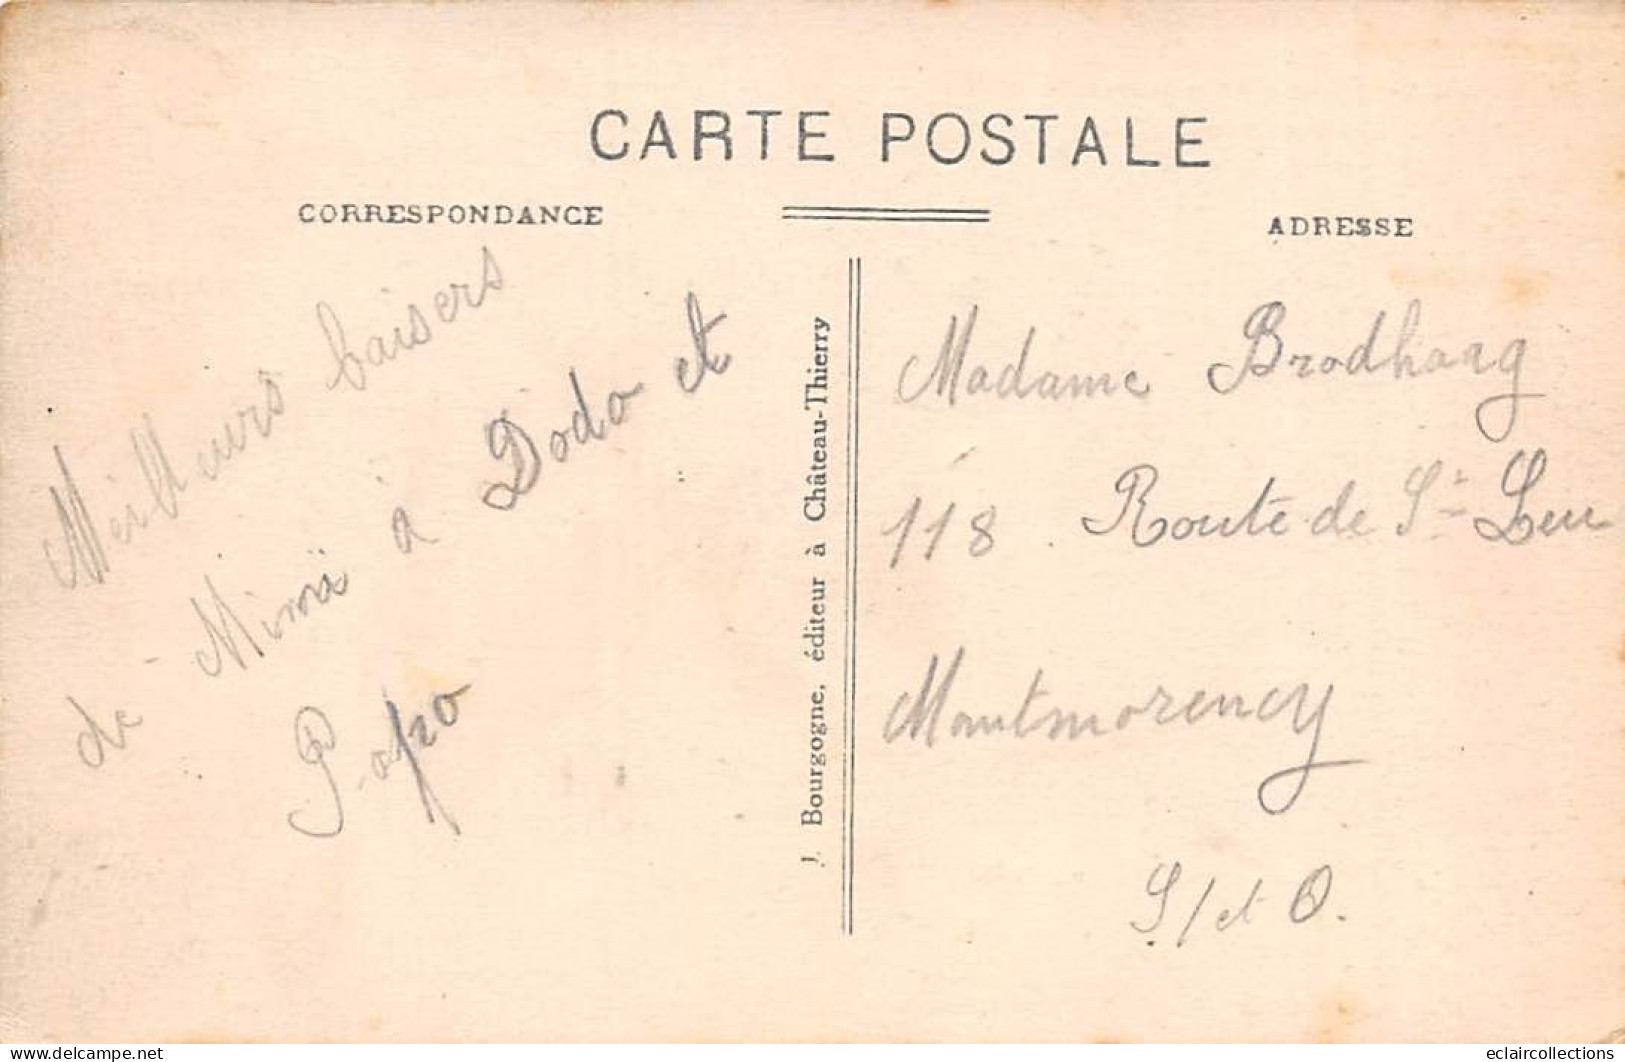 CARTE POSTALE
CORRESPONDANCE
ADRESSE
Meilleurs baisers
de Mima à Dodo et
Popo
J. Bourgogne, éditeur à Château-Thierry
Madame Brodhaag
118 Route de St Leu
Montmorency
S/et O.
eclaircollections